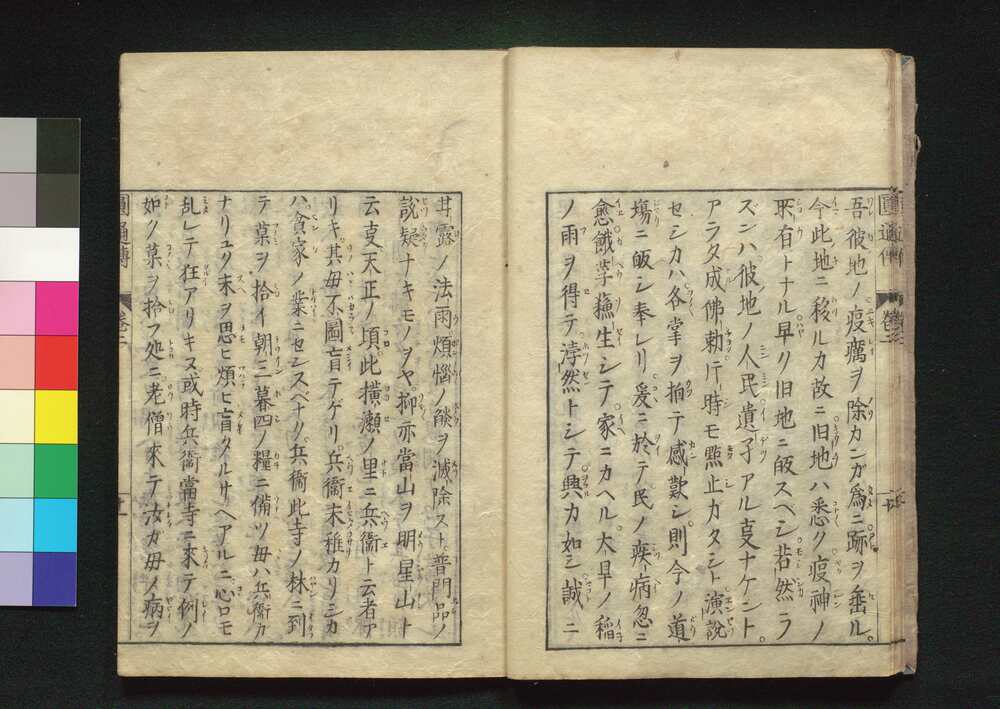 吾彼地ノ疫癘ヲ除カンガ爲ニ跡ヲノ垂ル。
今此地ニ移ルカ故ニ旧地ハ悉ク疫神ノ
所有トナル早ク旧地ニ皈スヘシ若然ラ
ズンハ彼地ノ人民遺孑アル𠮷ナケント。
アラタ成佛勅片時モ黙止カタシト演説
セシカハ各掌ヲ拍テ感歎シ則今ノ道
塲ニ皈シ奉レリ爰ニ於テ民ノ疾病忽ニ
愈餓莩蘓生シテ家ニカヘル。大旱ノ稲
ノ雨ヲ得テ浡然トシテ興カ如シ誠ニ
甘露ノ法雨煩惱ノ燄ヲ滅除スト普門品ノ
說疑ナキモノヲヤ抑亦當山ヲ明星山ト
云𠮷天正ノ頃此横瀬ノ里ニ兵衞ト云者ア
リキ其母不圖盲テゲリ兵衞未稚カリシカ
ハ貧家ノ業ニセンスベナク兵衞此寺ノ林ニ到
テ菓ヲ拾イ朝三暮四ノ糧ニ備ツ母ハ兵衞カ
ナリユク末ヲ思ヒ煩ヒ盲タルサヘアルニ心モ
乱レテ狂アリキス或時兵衞當寺ニ來テ例ノ
如ク菓ヲ拾フ処ニ老僧來テ汝カ母ノ病ヲ
圓通傳
卷三